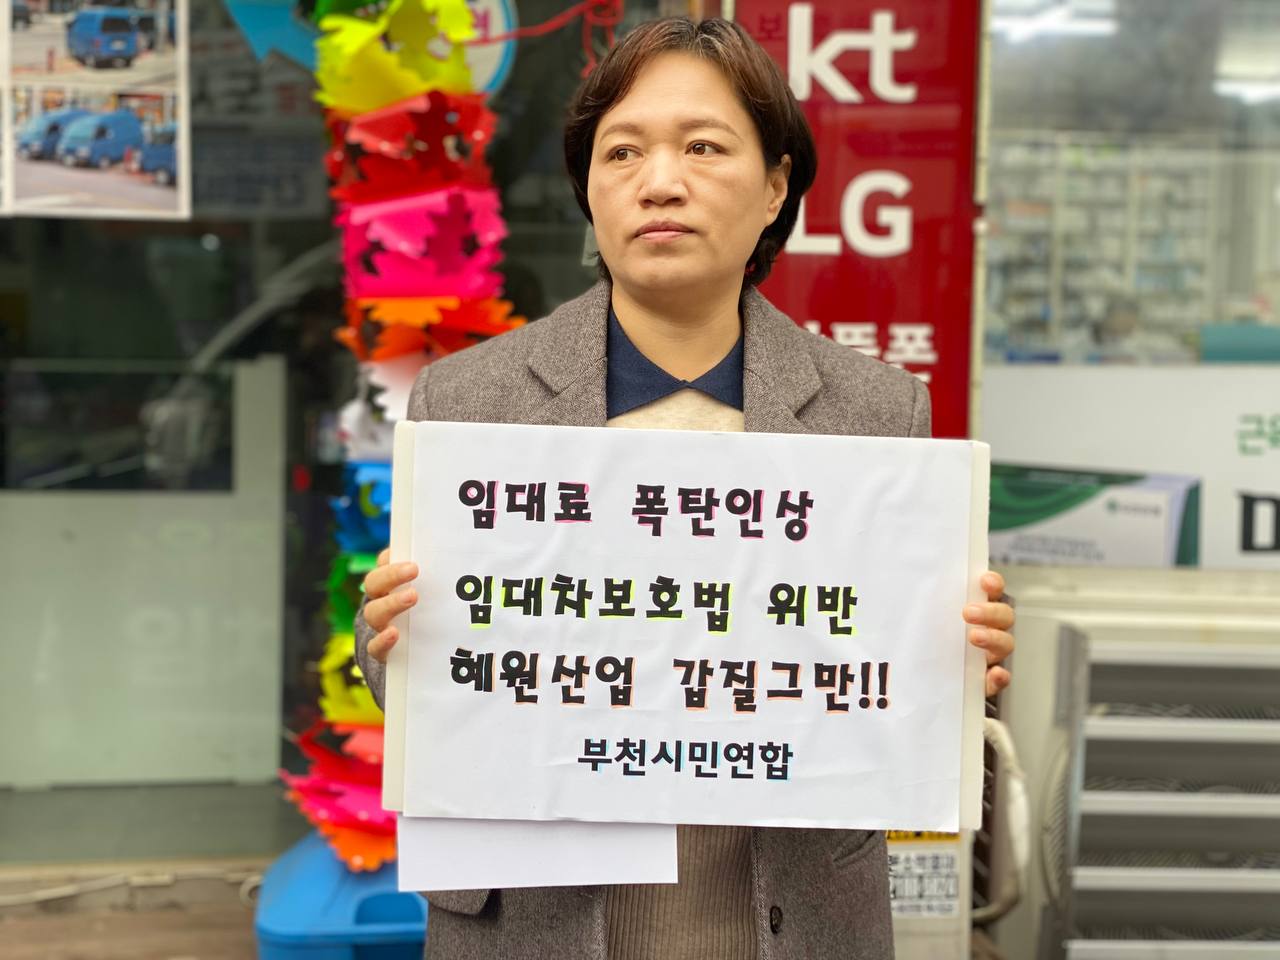 kt
LG
임대료 폭탄인상
임대차보호법 위반
혜원산업 갑질그만!!
부천시민연합